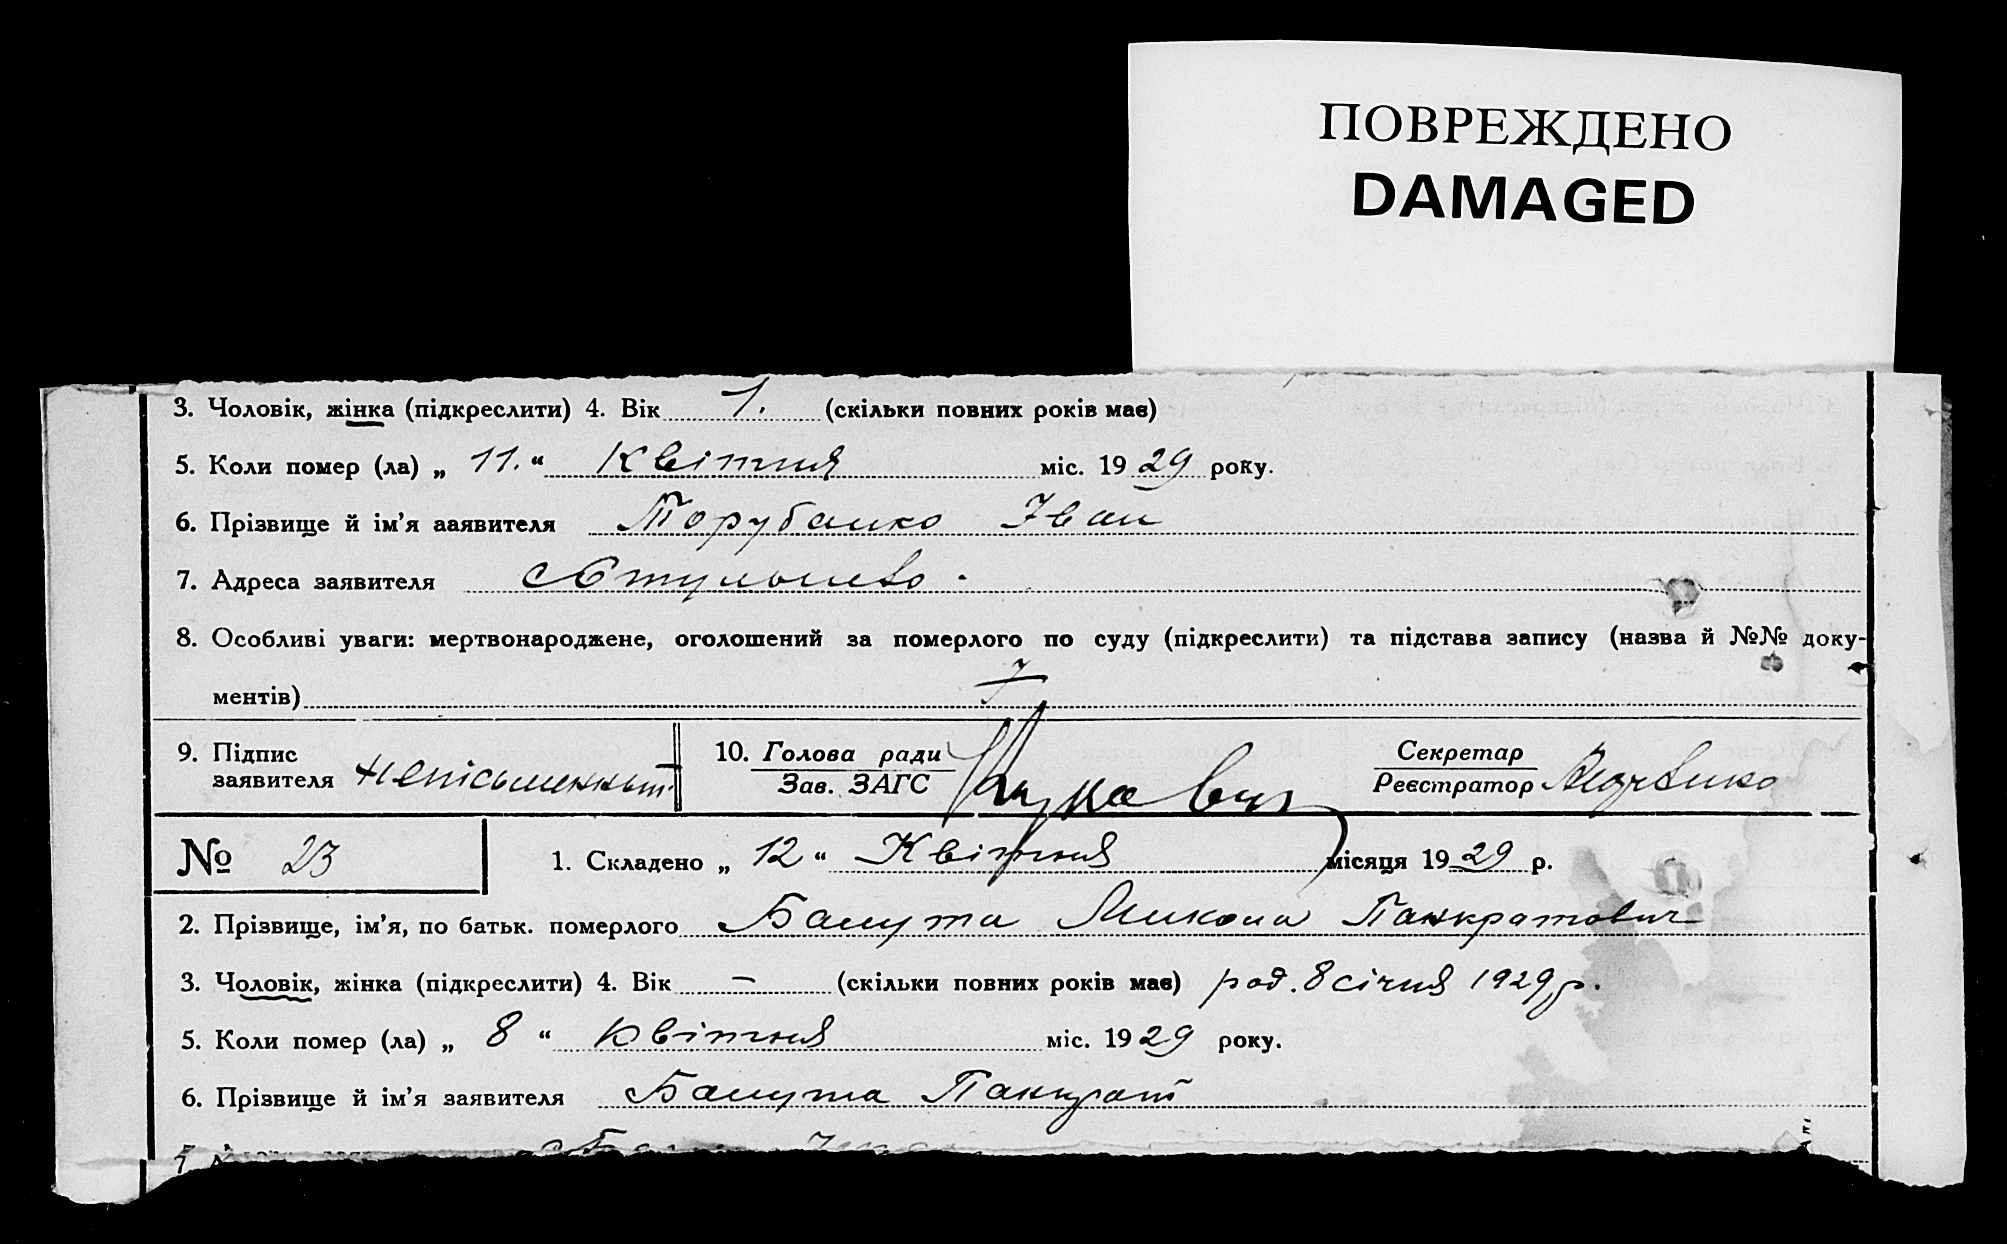 ПОВРЕЖДЕНО
DAMAGED
3. Чоловік, жінка (підкреслити) 4. Вік 1. (скільки повних років має)
5. Коли помер (ла) „ 11. “ Квітня міс. 1929 року.
6. Прізвище й ім’я заявителя Торубанко Іван
7. Адреса заявителя
8. Особливі уваги: мертвонароджене, оголошений за померлого по суду (підкреслити) та підстава запису (назва й №№ доку-
ментів)
9. Підпис заявителя 10. Голова ради Секретар
Зав. ЗАГС Реєстратор
№ 23 1. Складено „ 12 “ Квітня місяця 1929 р.
2. Прізвище, ім’я, по батьк. померлого Микола Панкратович
3. Чоловік, жінка (підкреслити) 4. Вік – (скільки повних років має) род. 8 січня 1929 р.
5. Коли помер (ла) „ 8 “ квітня міс. 1929 року.
6. Прізвище й ім’я заявителя Панкрат
7